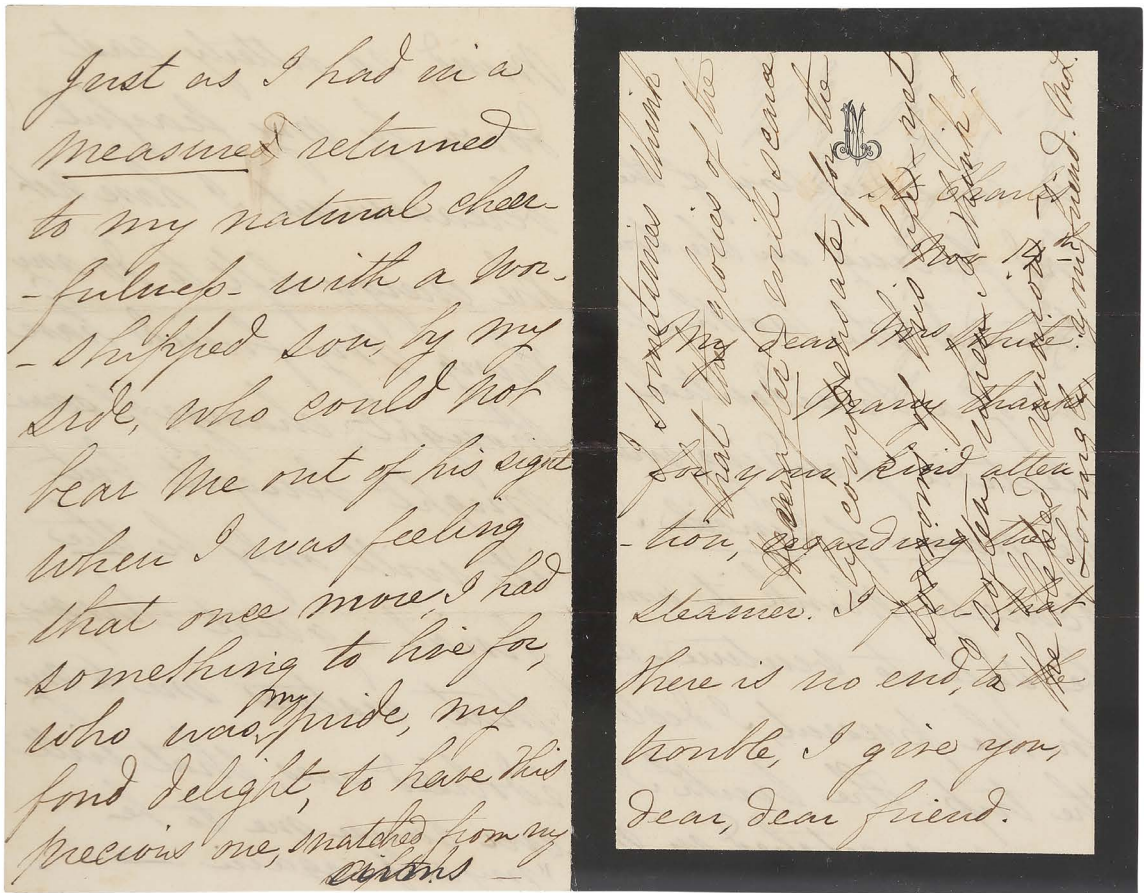 Just as I had in a
measured returned
to my natural cheer-
-fulness- with a wor-
-shipped son, by my
side, who could not
bear me out of his sight
when I was feeling
that once more, I had
something to live for,
who was my pride, my
fond delight, to have this
precious one, snatched from my
LM
St Charles
Nov 14th
My dear Mrs White:
Many thanks
for your kind atten-
-tion, regarding the
steamer. I feel that
there is no end, to the
trouble, I give you,
dear, dear friend.
I sometimes think
that the glories of the
hereafter will scarce
-ly compensate, for the
of this life- yet
so few I think of
the blessed reunion-
Your loving friend. M. L.